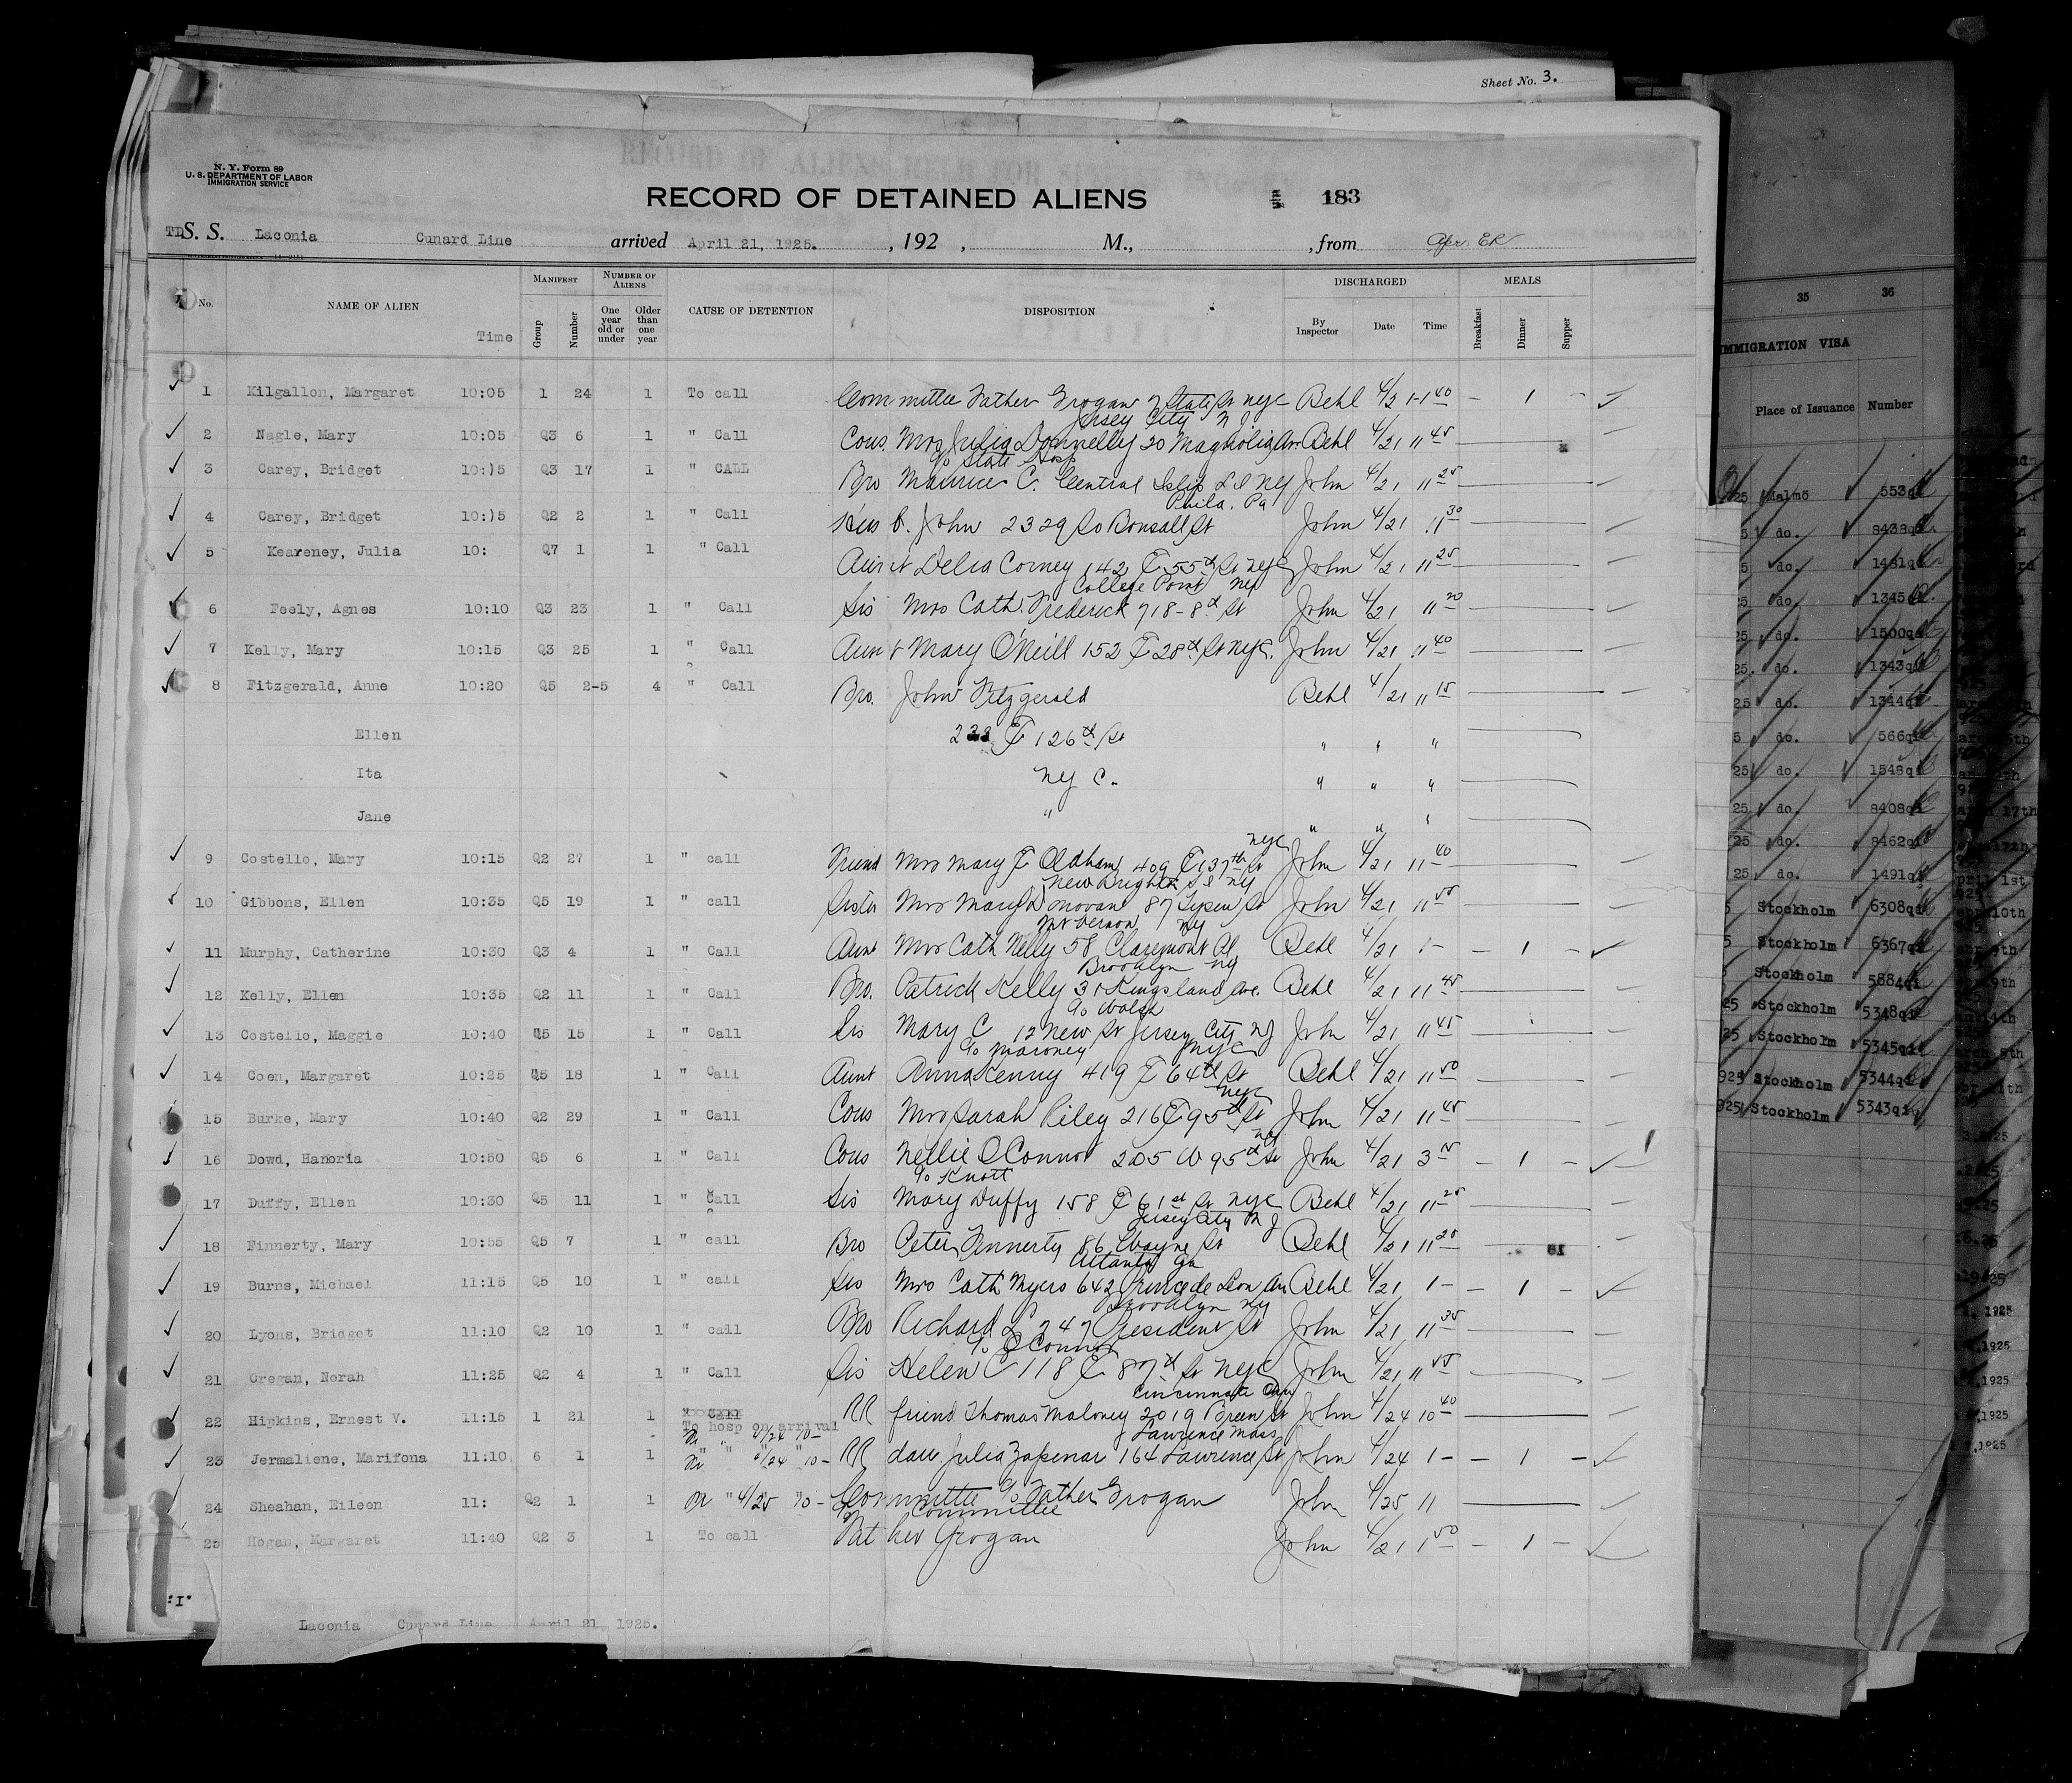 Sheet No. 3.
N. Y. Form 89
U. S. DEPARTMENT OF LABOR
IMMIGRATION SERVICE
RECORD OF DETAINED ALIENS 183
S. S. Laconia Cunard Line arrived April 21, 1925. , 192 , M., , from
No. NAME OF ALIEN Time MANIFEST Group Number NUMBER OF ALIENS One year old or under Older than one year CAUSE OF DETENTION DISPOSITION DISCHARGED By Inspector Date Time MEALS Breakfast Dinner Supper
1 Kilgallon, Margaret 10:05 1 24 1 To call Committee Father Grogan 7 State St NYC Behl 4/21 1 40 - 1 -
Jersey City N J
2 Nagle, Mary 10:05 Q3 6 1 " Call Cous. Mrs Julia Donnelly 20 Magnolia Av. Behl 4/21 11 45
c/o State Hosp
3 Carey, Bridget 10:)5 Q3 17 1 " CALL Bro Maurice C. Central Islip L I NY John 4/21 11 25
Phila. Pa
4 Carey, Bridget 10:)5 Q2 2 1 " Call Hus C. John 2329 So Bonsall St John 4/21 11 30
5 Keareney, Julia 10: Q7 1 1 " Call Aunt Delia Corney 142 E 55th St NYC John 4/21 11 25
College Point NY
6 Feely, Agnes 10:10 Q3 23 1 " Call Sis Mrs Cath. Frederick 718-8th St John 4/21 11 20
7 Kelly, Mary 10:15 Q3 25 1 " Call Aunt Mary O'Neill 152 E 28th St NYC. John 4/21 11 40
8 Fitzgerald, Anne 10:20 Q5 2-5 4 " Call Bro. John Fitzgerald Behl 4/21 11 15
Ellen E 126th St " " "
Ita NY C. " " "
Jane " " " "
NYC
9 Costello, Mary 10:15 Q2 27 1 " call Friend Mrs Mary E Oldham 409 E 137th St John 4/21 11 40
New Brighton S I NY
10 Gibbons, Ellen 10:35 Q5 19 1 " call Sister Mrs Mary Donovan 87 St John 4/21 11 55
Mt Vernon NY
11 Murphy, Catherine 10:30 Q3 4 1 " Call Aunt Mrs Cath Kelly 58 Claremont Pl Behl 4/21 1- - 1 -
Brooklyn NY
12 Kelly, Ellen 10:35 Q2 11 1 " Call Bro. Patrick Kelly 31 Kingsland Ave. Behl 4/21 11 45
c/o Walsh
13 Costello, Maggie 10:40 Q5 15 1 " Call Sis Mary C 12 New St Jersey City NJ John 4/21 11 45
c/o Maroney NYC
14 Coen, Margaret 10:25 Q5 18 1 " Call Aunt Anna Kenny 419 E 64th St Behl 4/21 11 50
NYC
15 Burke, Mary 10:40 Q2 29 1 " Call Cous Mrs Sarah Riley 216 E 95th St John 4/21 11 45
NY
16 Dowd, Hanoria 10:50 Q5 6 1 " Call Cous Nellie OConnor 205 W 95th St John 4/21 3 15 - 1 -
c/o Knott
17 Duffy, Ellen 10:30 Q5 11 1 " Call Sis Mary Duffy 158 E 61st St NYC Behl 4/21 11 25
Jersey City N J
18 Finnerty, Mary 10:55 Q5 7 1 " call Bro Peter Finnerty 86 Wayne St Behl 4/21 11 25
Atlanta Ga
19 Burns, Michael 11:15 Q5 10 1 " call Sis Mrs Cath Myers 642 Ponce de Leon Av Behl 4/21 1- - 1 -
Brooklyn NY
20 Lyons, Bridget 11:10 Q2 10 1 " call Bro Richard L 247 President St John 4/21 11 35
c/o O'Connor
21 Cregan, Norah 11:25 Q2 4 1 " Call Sis Helen C 118 E 87th St NYC John 4/21 11 55
Cincinnati Ohio
22 Hipkins, Ernest V. 11:15 1 21 1 To hosp on arrival RR friend Thomas Maloney 2019 Breen St John 4/24 10 40
4/24 10- Lawrence Mass
23 Jermaliene, Marifona 11:10 6 1 1 " " " 4/24 10- RR dau Julia Zapenar 164 Lawrence St John 4/24 1- - 1 -
24 Sheahan, Eileen 11: Q2 1 1 4/25 10- Committee c/o Father Grogan John 4/25 11
Committee
25 Hogan, Margaret 11:40 Q2 3 1 To call Father Grogan John 4/21 1 50 - 1 -
Laconia Cunard Line April 21 1925.
35 36
IMMIGRATION VISA
Place of Issuance Number
25 Malmö 553
5 do. 8438
5 do. 1481
25 do. 1345
25 do. 1500
25. do. 1343
25 do. 1344
5 do. 566
25 do. 1548
25 do. 8408
25 do. 8462
25 do. 1491
5 Stockholm 6308
5 Stockholm 6367
Stockholm 5884
25 Stockholm 5348
25 Stockholm 5345
925 Stockholm 5344
925 Stockholm 5343